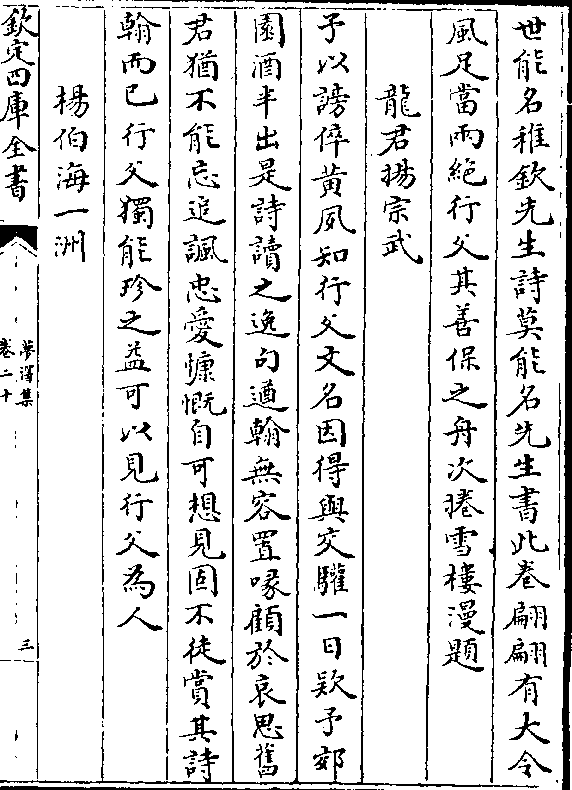 世能名稚欽先生詩莫能名先生書此卷翩翩有大令
風足當兩絶行父其善保之舟次捲雪樓漫題
龍君揚宗武
予以謗倅黄夙知行父文名因得與交驩一日欵予郊
園酒半出是詩讀之逸句遒翰無容置喙顧於哀思舊
君猶不能忘追諷忠愛慷慨自可想見固不徒賞其詩
翰而已行父獨能珍之益可以見行父為人
楊伯海一洲
欽定四庫全書
夢澤集
卷二十
三